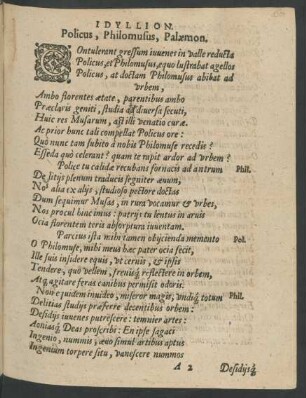 IDYLLION.
Policus, Philomusus, Palæmon.
COntulerant gressum iuuenes in valle reducta
Policus, et Philomusus, equo lustrabat agellos
Policus, at doctam Philomusus abibat ad
vrbem,
Ambo florentes ætate, parentibus ambo
Præclaris geniti, studia ad diuersa secuti,
Huic res Musarum, ast illi venatio curæ.
Ac prior hunc tali compellat Policus ore:
Quò nunc tam subito à nobis Philomuse recedis?
Esseda quò celerant? quam te rapit ardor ad vrbem?
Police tu calidæ recubans fornacis ad antrum
Phil.
Desitijs plenum traducis segniter æuum,
Nos alia ex alijs, studioso pectore doctas
Dum sequimur Musas, in rura vocamur & vrbes,
Nos procul hinc imus: patrijs tu lentus in aruis
Ocia florentem teris absorptura iuuentam.
Parcius ista mihi tamen obijcienda memento
Pol.
O Philomuse, mihi meus hæc pater ocia fecit,
Ille suis insidere equis, vt cernis, & ipsis
Tendere, quo vellem, frenisq; reflectere in orbem,
Atq; agitare feras canibus permisit odoris.
Non equidem inuideo, miseror magis, vndiq; totum
Phil.
Delitias studijs præferre decentibus orbem:
Desidijs iuuenes putrescere: temnier artes:
Aoniasq; Deas proscribi: En ipse sagaci
Ingenio, nummis, æuo simul artibus aptus
Ingenium torpere situ, vanescere nummos
A 2
Desidijsq;